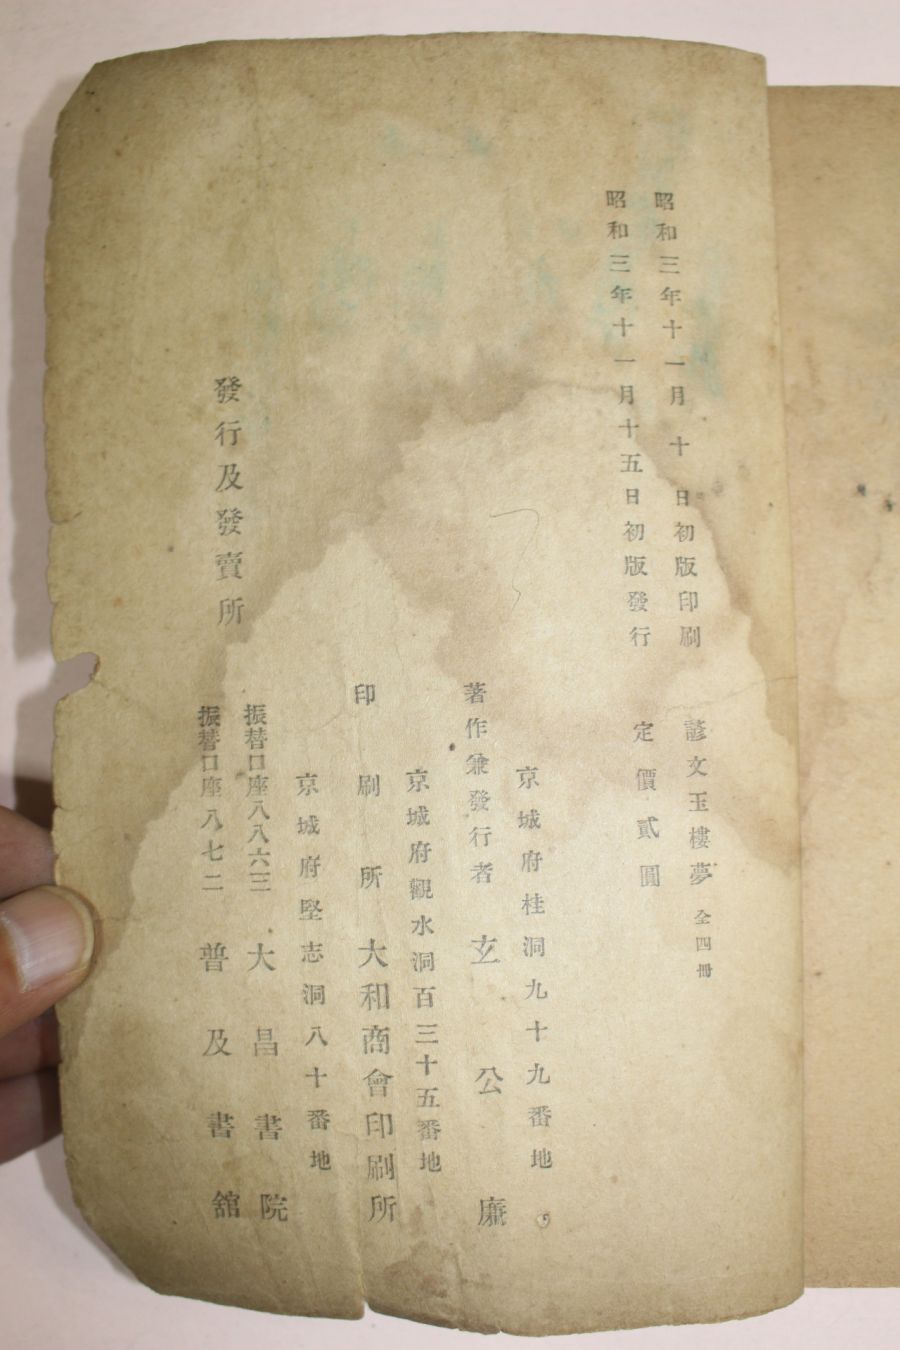 昭和三年十一月十日初版印刷
昭和三年十一月十五日初版發行
諺文玉樓夢 全四冊
定價貳圓
京城府桂洞九十九番地
著作兼發行者 玄公廉
京城府觀水洞百三十五番地
印刷所 大和商會印刷所
京城府堅志洞八十番地
發行及發賣所
振替口座八八六三 大昌書院
振替口座八七二 普及書舘